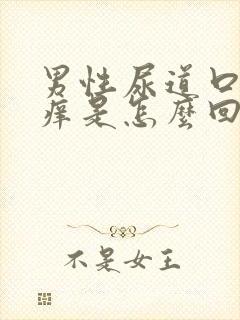 男性尿道口
痒是怎麼回
不是女王